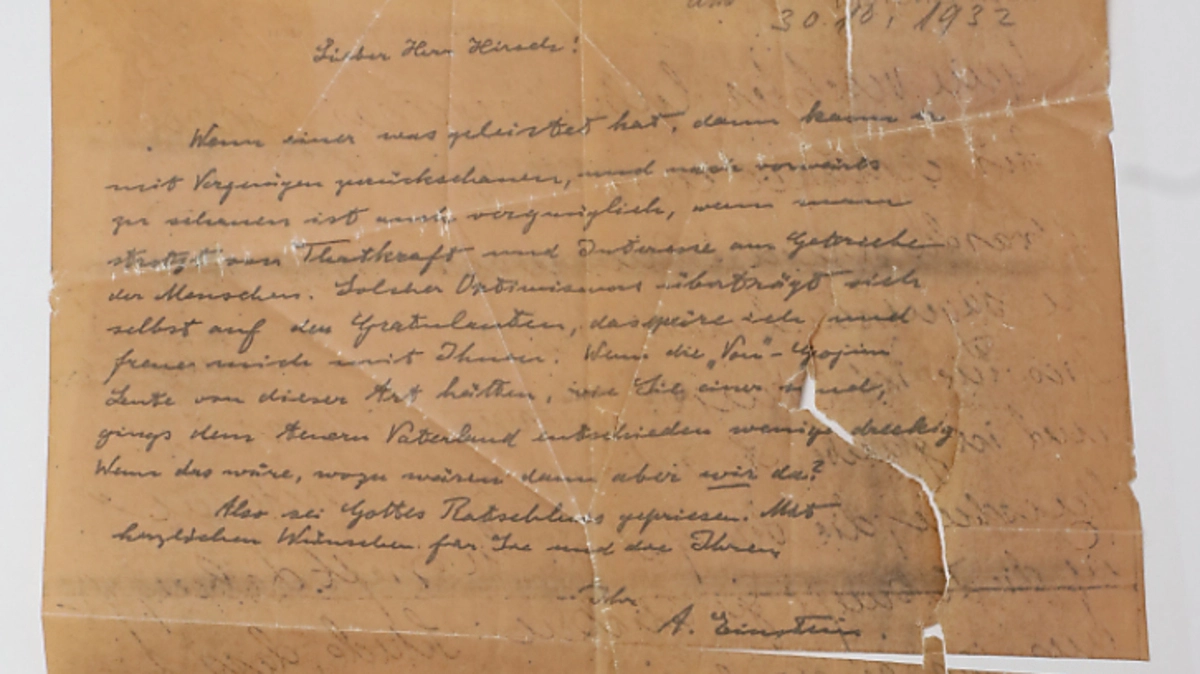 30.10.1932
Lieber Herr Hirsch!
Wenn einer was geleistet hat, dann kann er
mit Vergnügen zurückschauen, und vorwärts
zu schauen ist auch vergnüglich, wenn man
strotzt von Thatkraft und Interesse am Getriebe
der Menschen. Solcher Optimismus überträgt sich
selbst auf den Gratulanten, das spüre ich und
freue mich mit Ihnen. Wenn die „Von"-Gojim
Leute von dieser Art hätten, wie Sie einer sind,
gings dem teuern Vaterland entschieden weniger dreckig
Wenn das wäre, wozu wären dann aber wir da?
Also sei Gottes Ratschluss gepriesen. Mit
herzlichen Wünschen für Sie und die Ihren
Ihr
A. Einstein.